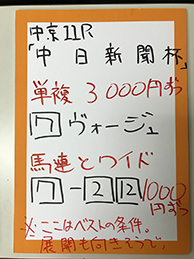 中京11R
「中日新聞杯」
単複 3000円ずつ
7 ヴァージュ
馬連とワイド
7-2 12 1000円ずつ
※ここはベストの条件。
展開も向きそうで、